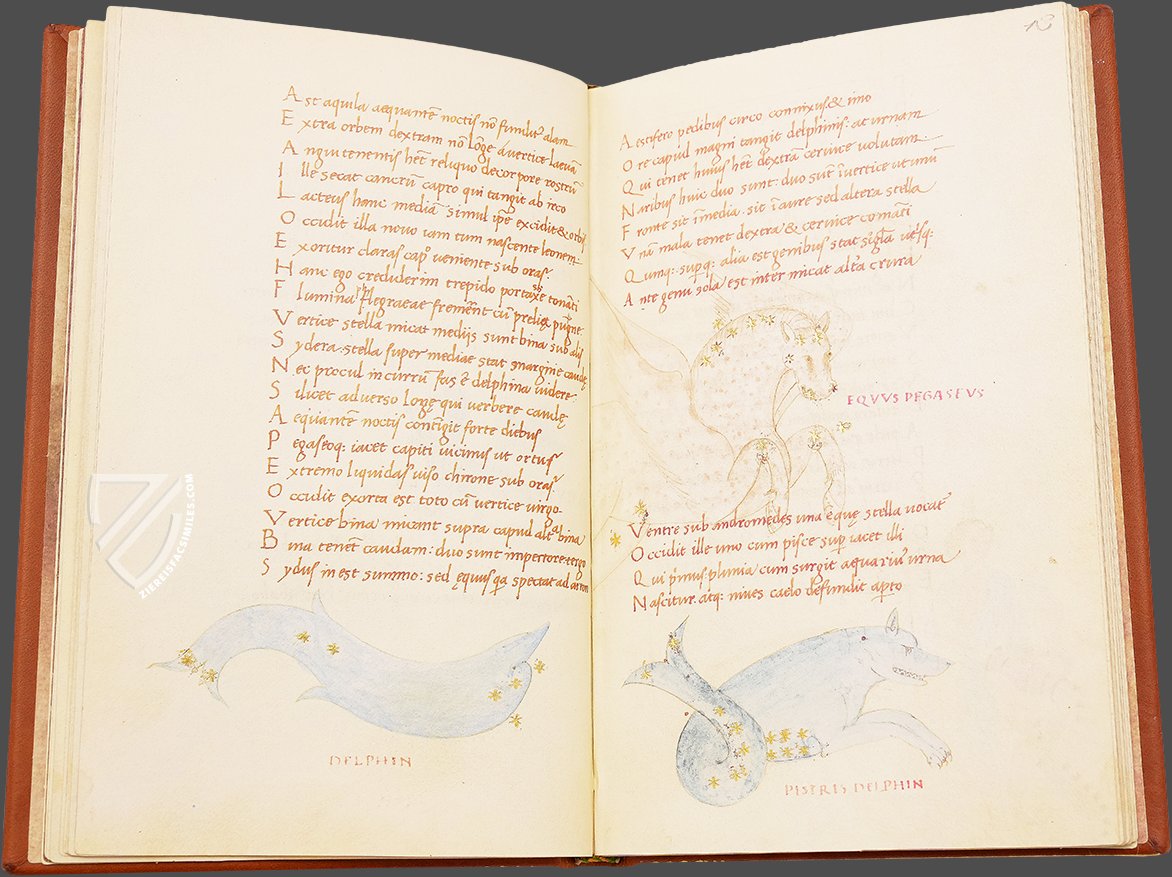 Ast aquila aequantē noctis nō funditᵘ alam
Extra orbem dextram nō longe á vertice laevā
Anguitenentis hēt reliquo de corpore rostrū
Ille secat cancrū capro qui tangit ab irco
Lacteus hanc mediā simul ipse excidit & orbis
Occidit illa novo iam tum nascente leonem
Exoritur claras capᵒ veniente sub oras
Hanc ego crediderim trepido portasse tonāti
Flumina flegraeae fremēnt cū
Vertice stella micat mediis sunt bina sub alis
Sydera: stella super mediae stat margine caudę
Nec procul in currū fas ē delphina videre
Silicet adverso longę qui verbere caudę
Aequiantēm noctis contigit forte diebus
Pegaseoq: iacet capiti vicinus ut ortus
Extremo liquidas viso chirone sub oras
Occidit exorta est toto cū vertice virgo
Vertice bina micant supra capud altᵃ bina
Bina tenent caudam: duo sunt in pectore: tergo
Sydus in est summo: sed equus qa spectat ad arma
DELPHIN
18
Aestifero pedibus circo connixus & imo
Ore capud magni tangit delphinis: at urnam
Qui tenet huius hēt dextrā cervice volutam
Naribus huic duo sunt: duo sunt ī vertice ut unū
Fronte sit ī media. sit ī aure sed altera stella
Vnā mala tenet dextra & cervice comāti
Quinq: supq: alia est genibus stat
Ante genu sola est inter micat altᵃ crura
EQVVS PEGASEVS
Ventre sub andromedes una equę stella vocatᵘ
Occidit ille uno cum pisce supᵃ iacet illi
Qui pᵢmus pluvia cum surgit aequariuˢ urna
Nascitur. atq: nives caelo defundit apto
PISTRIS DELPHIN
ZIEREISFACSIMILES.COM